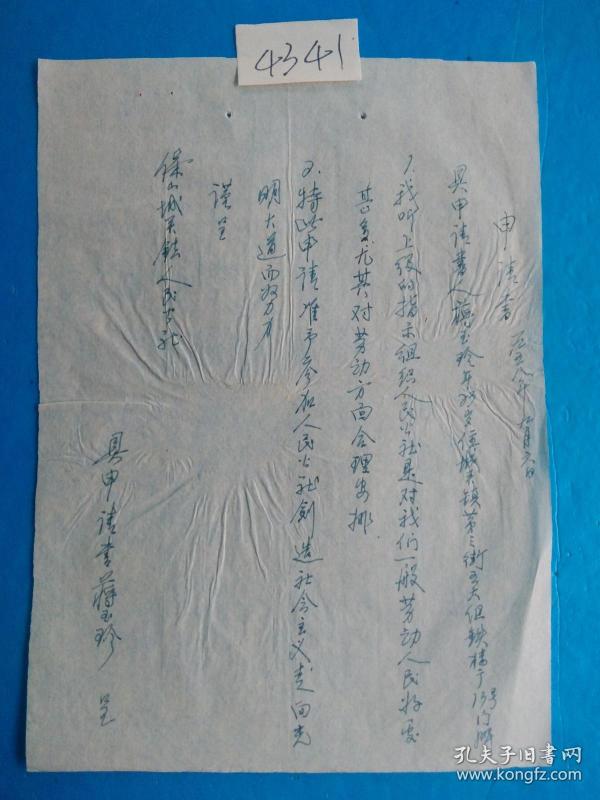 4341
申请书 一九五八年 九月六日
具申请书人蒋玉珍年 岁住城关镇第三街 组 楼子13号门牌
1.我叫上级的指示组织人民公社是对我们一般劳动人民好处
甚多尤其对劳动方面合理安排.
2.特此申请准予参加人民公社创造社会主义走向光
明大道而努力
谨呈
保山城关镇人民公社
具申请书蒋玉珍 呈
孔夫子旧书网
www.kongfz.com